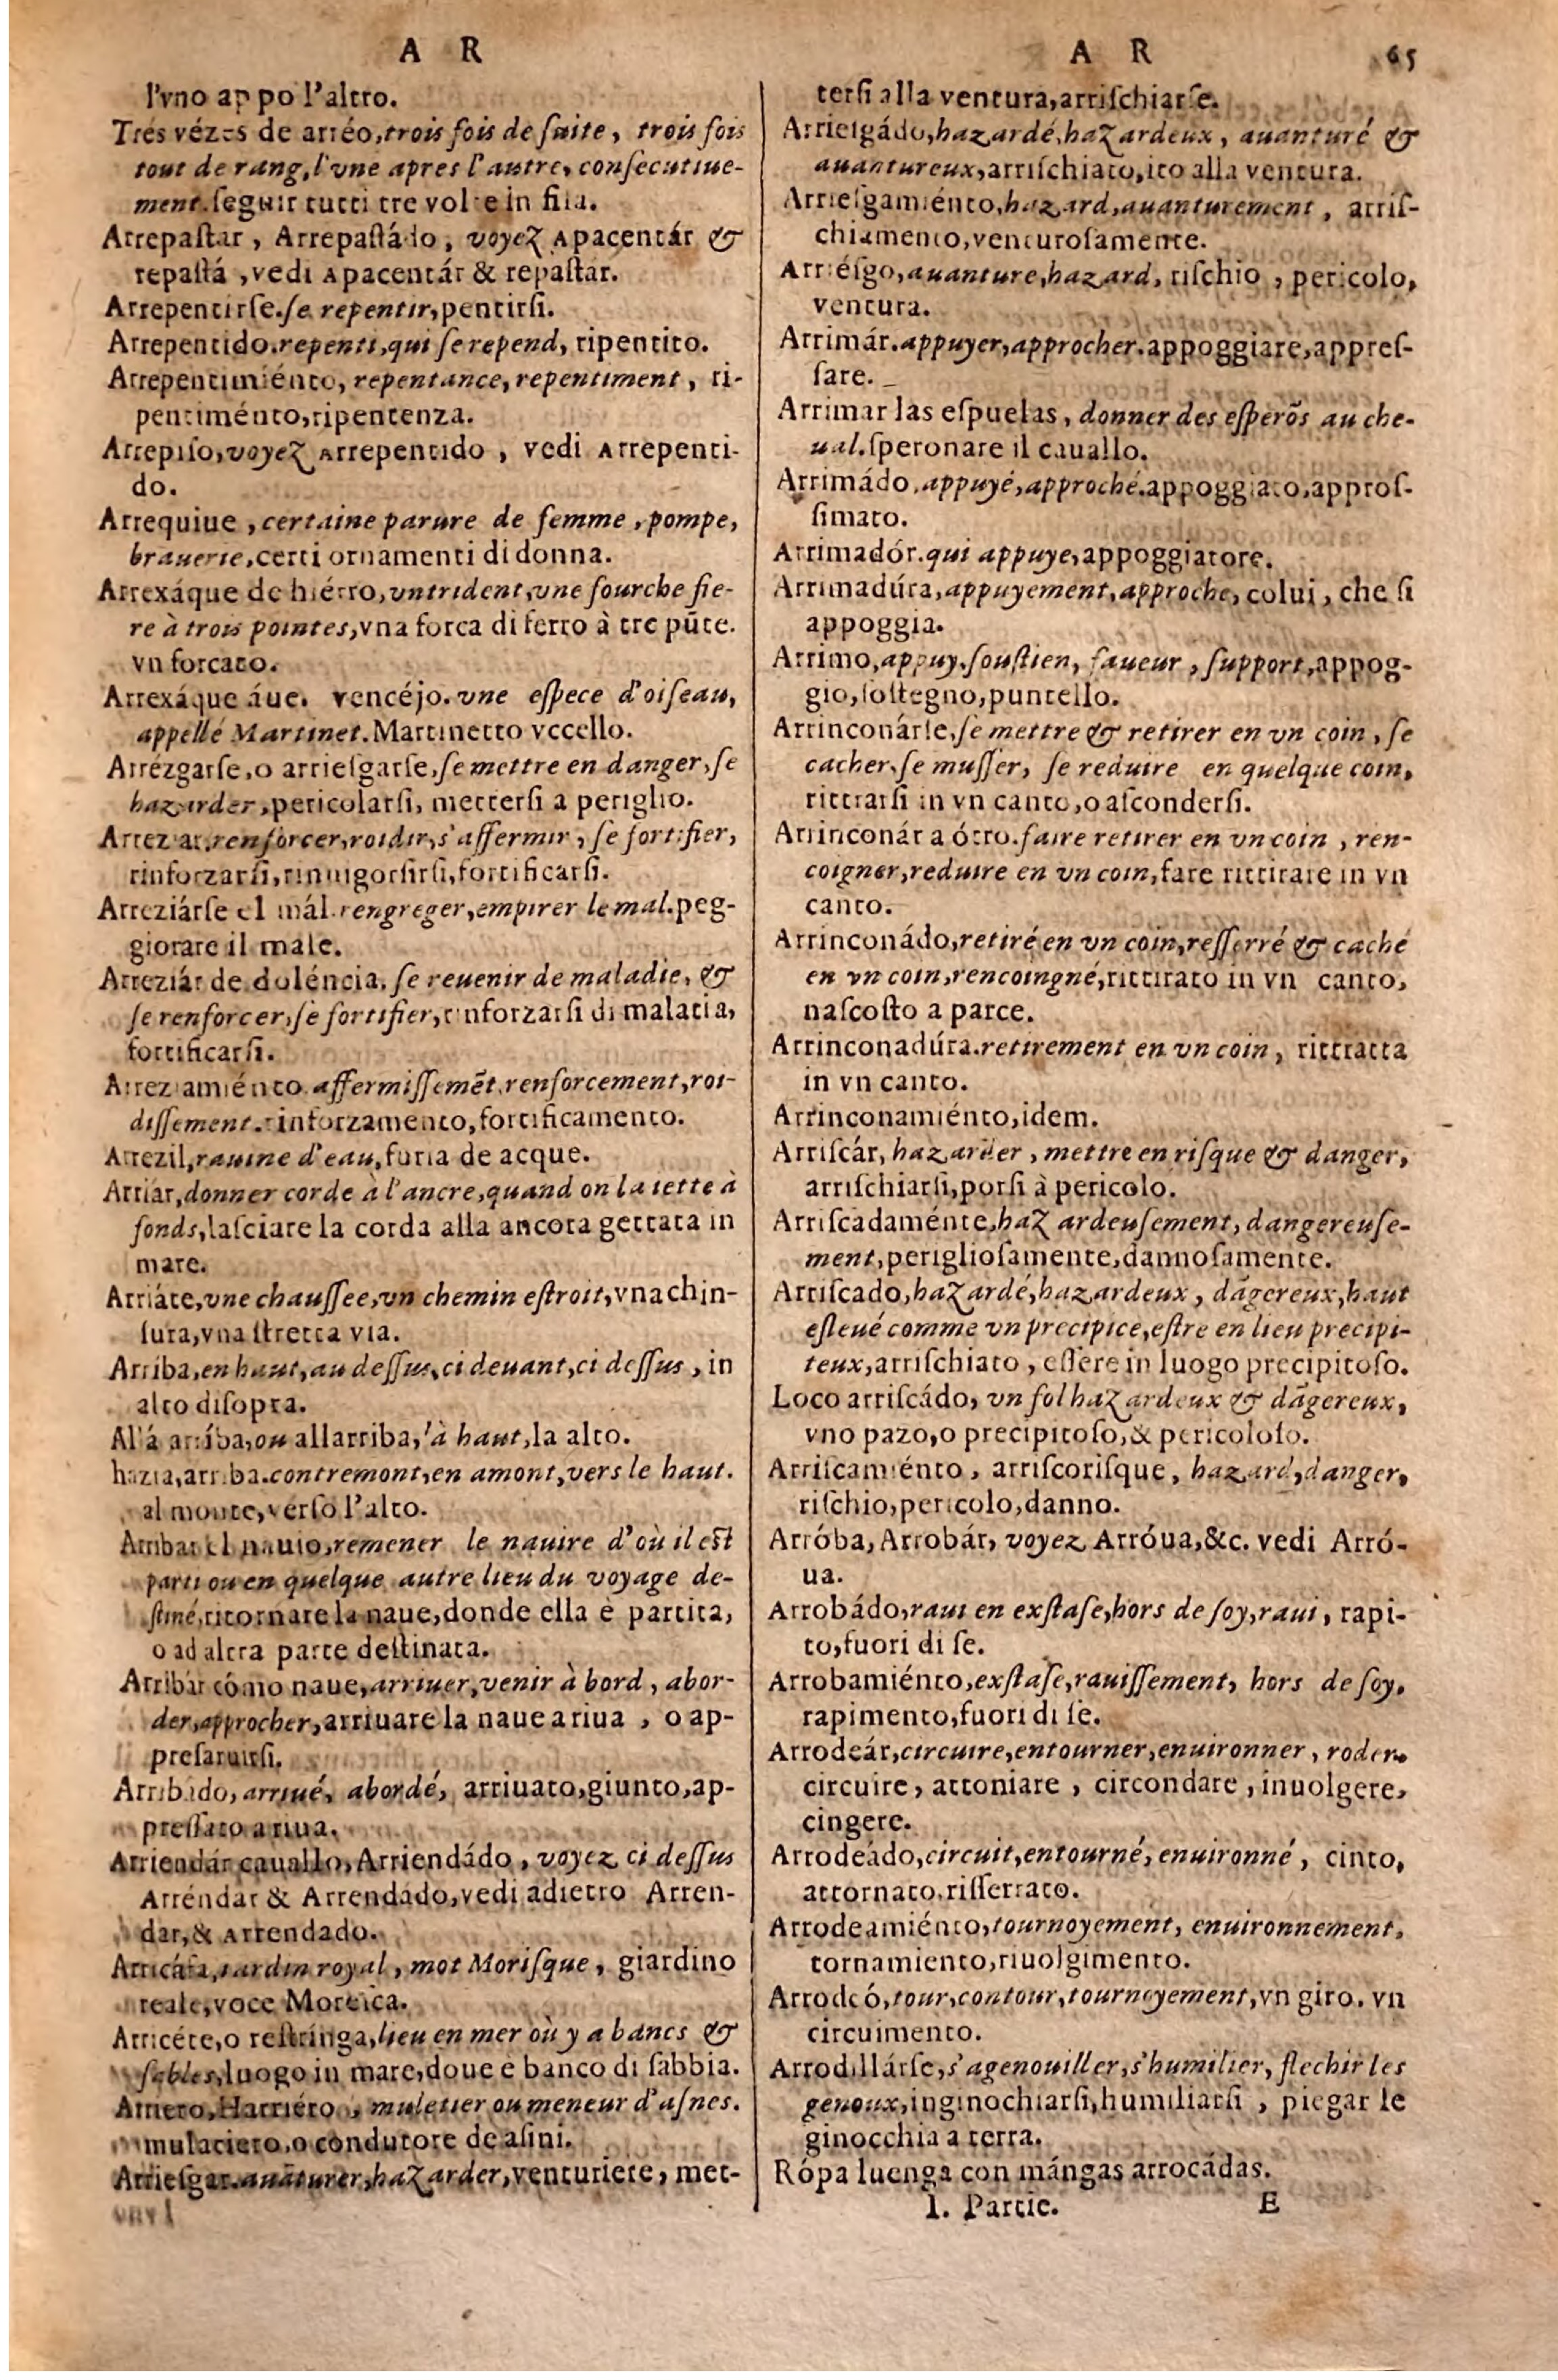 A R
l'vno appo l'altro.
Trés vézes de arréo, trois fois de ſuite, trois fois
tout de rang, l'vne apres l'autre, conſecutiue-
ment. ſeguir tutti tre volte in fila.
Arrepaſtar, Arrepaſtádo, voyez Apacentár &
repaſtá, vedi Apacentár & repaſtar.
Arrepentirſe. ſe repentir, pentirſi.
Arrepentido. repenti, qui ſe repend, ripentito.
Arrepentimiénto, repentance, repentiment, ri-
pentiménto, ripentenza.
Arrepiſo, voyez Arrepentido, vedi Arrepenti-
do.
Arrequiue, certaine parure de femme, pompe,
brauerie, certi ornamenti di donna.
Arrexáque de hiérro, vn trident, vne fourche fie-
re à trois pointes, vna forca di ferro à tre pūte.
vn forcato.
Arrexáque áue. vencéjo. vne eſpece d'oiſeau,
appellé Martinet. Martinetto vccello.
Arrézgarſe, o arrieſgarſe, ſe mettre en danger, ſe
hazarder, pericolarſi, metterſi a periglio.
Arreziar. renforcer, roidir, s'affermir, ſe fortifier,
rinforzarſi, rinuigorſirſi, fortificarſi.
Arreziárſe el mál. rengreger, empirer le mal. peg-
giorare il male.
Arreziár de doléncia, ſe reuenir de maladie, &
ſe renforcer, ſe fortifier, rinforzarſi di malatia,
fortificarſi.
Arreziamiénto. affermiſſemēt, renforcement, roi-
diſſement. rinforzamento, fortificamento.
Arrezil, rauine d'eau, furia de acque.
Arriár, donner corde à l'ancre, quand on la iette à
fonds, laſciare la corda alla ancora gettata in
mare.
Arriáte, vne chauſſee, vn chemin eſtroit, vna chin-
ſura, vna ſtretta via.
Arriba, en haut, au deſſus, ci deuant, ci deſſus, in
alto diſopra.
Allá arríba, ou allarriba, là haut, la alto.
hazia, arriba. contremont, en amont, vers le haut.
al monte, verſo l'alto.
Arribar el nauio, remener le nauire d'où il eſt
parti ou en quelque autre lieu du voyage de-
ſtiné, ritornare la naue, donde ella è partita,
o ad altra parte deſtinata.
Arribár cómo naue, arriuer, venir à bord, abor-
der, approcher, arriuare la naue a riua, o ap-
preſaruirſi.
Arribado, arriué, abordé, arriuato, giunto, ap-
preſſato a riua.
Arriendár cauallo, Arriendádo, voyez ci deſſus
Arréndar & Arrendado, vedi adietro Arren-
dar, & Arrendado.
Arricáfa, iardin royal, mot Moriſque, giardino
reale, voce Moreſca.
Arricéte, o reſtrínga, lieu en mer où y a bancs &
ſables, luogo in mare, doue è banco di ſabbia.
Arriero, Harriéro, muletier ou meneur d'aſnes.
mulatiero, o condutore de aſini.
Arrieſgar. auāturer, hazarder, venturiere, met-
A R 65
terſi alla ventura, arriſchiarſe.
Arrieſgádo, hazardé, hazardeux, auanturé &
auantureux, arriſchiato, ito alla ventura.
Arrieſgamiénto, hazard, auanturement, arriſ-
chiamento, venturoſamente.
Arriéſgo, auanture, hazard, riſchio, pericolo,
ventura.
Arrimár. appuyer, approcher. appoggiare, appreſ-
ſare.
Arrimar las eſpuelas, donner des eſperōs au che-
ual. ſperonare il cauallo.
Arrimádo, appuyé, approché. appoggiato, approſ-
ſimato.
Arrimadór. qui appuye, appoggiatore.
Arrimadúra, appuyement, approche, colui, che ſi
appoggia.
Arrimo, appuy, ſouſtien, faueur, ſupport, appog-
gio, ſoſtegno, puntello.
Arrinconárſe, ſe mettre & retirer en vn coin, ſe
cacher, ſe muſſer, ſe reduire en quelque coin,
rittrarſi in vn canto, o aſconderſi.
Arrinconár a ótro. faire retirer en vn coin, ren-
coigner, reduire en vn coin, fare rittirare in vn
canto.
Arrinconádo, retiré en vn coin, reſſerré & caché
en vn coin, rencoingné, rittirato in vn canto,
naſcoſto a parte.
Arrinconadúra. retirement en vn coin, rittratta
in vn canto.
Arrinconamiénto, idem.
Arriſcár, hazarder, mettre en riſque & danger,
arriſchiarſi, porſi à pericolo.
Arriſcadaménte, hazardeuſement, dangereuſe-
ment, periglioſamente, dannoſamente.
Arriſcado, hazardé, hazardeux, dāgereux, haut
eſleué comme vn precipice, eſtre en lieu precipi-
teux, arriſchiato, eſſere in luogo precipitoſo.
Loco arriſcádo, vn fol hazardeux & dāgereux,
vno pazo, o precipitoſo, & pericoloſo.
Arriſcamiénto, arriſcoriſque, hazard, danger,
riſchio, pericolo, danno.
Arróba, Arrobár, voyez Arróua, &c. vedi Arró-
ua.
Arrobádo, raui en exſtaſe, hors de ſoy, raui, rapi-
to, fuori di ſe.
Arrobamiénto, exſtaſe, rauiſſement, hors de ſoy,
rapimento, fuori di ſe.
Arrodeár, circuire, entourner, enuironner, roder.
circuire, attoniare, circondare, inuolgere,
cingere.
Arrodeádo, circuit, entourné, enuironné, cinto,
attornato, riſſerrato.
Arrodeamiénto, tournoyement, enuironnement,
tornamiento, riuolgimento.
Arrodeó, tour, contour, tournoyement, vn giro. vn
circuimento.
Arrodillárſe, s'agenouiller, s'humilier, flechir les
genoux, inginochiarſi, humiliarſi, piegar le
ginocchia a terra.
Rópa luenga con mángas arrocádas.
I. Partie. E